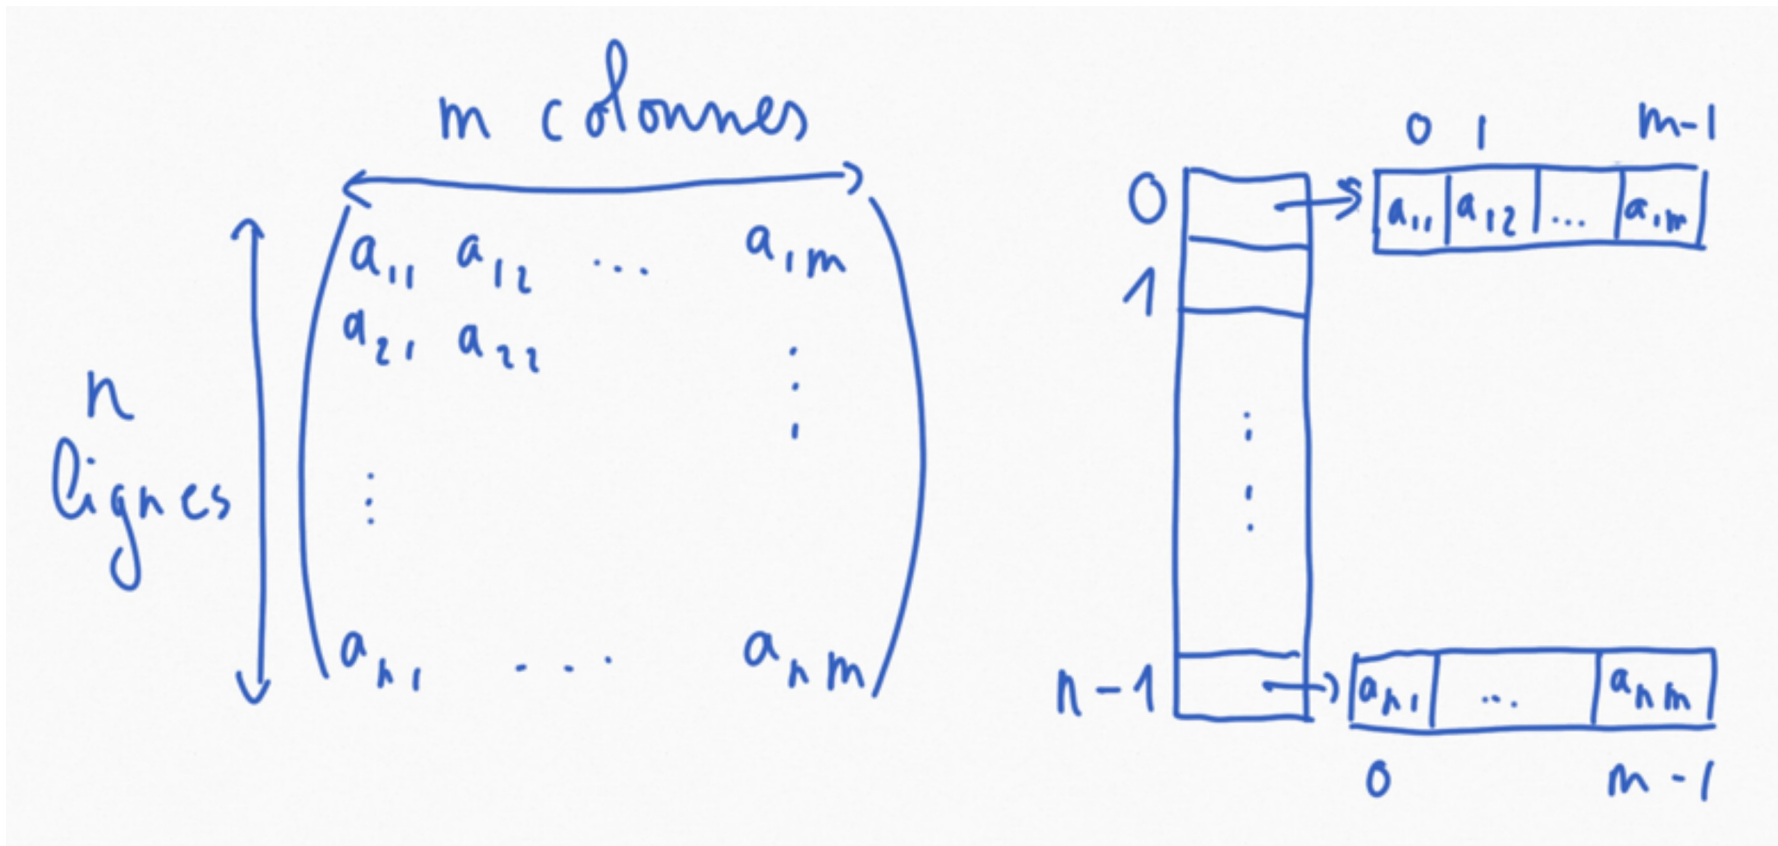 m colonnes
n
lignes
a11 a12 ... a1m
a21 a22
an1 ... anm
0 1 m-1
0 a11 a12 ... a1m
1
n-1 an1 ... anm
0 m-1